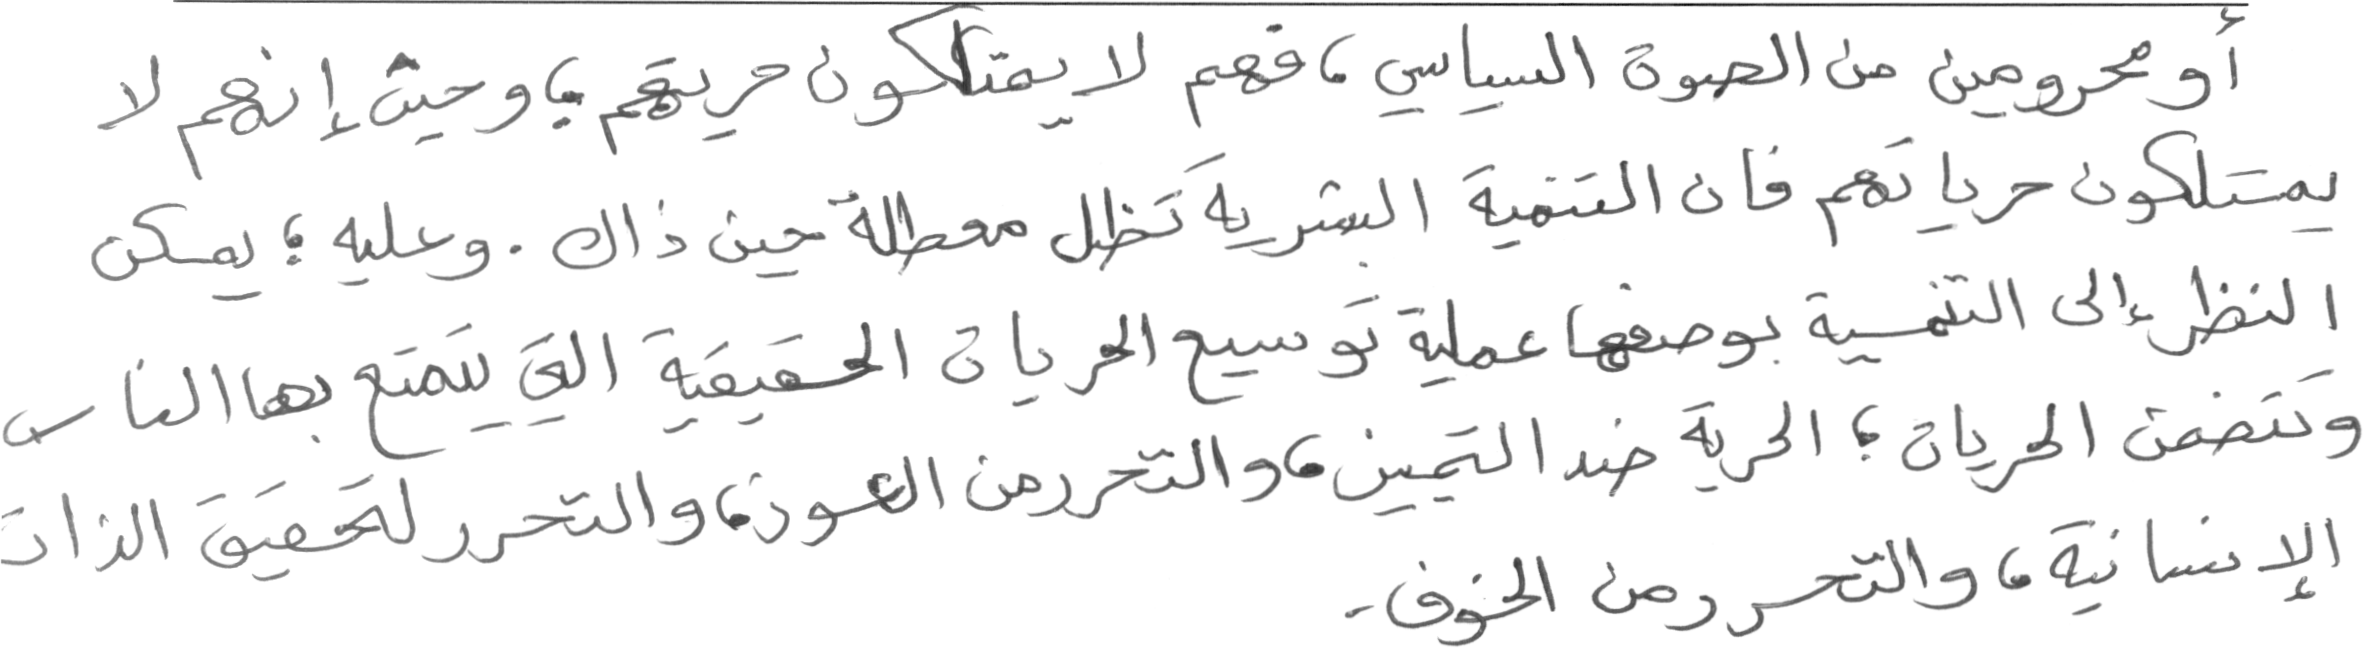 أو محرومين من الصوت السياسي، فهم لا يمتلكون حريتهم؛ وحيث إنهم لا
يمتلكون حرياتهم فان التنمية البشرية تظل معطلة حين ذاك . وعليه ؛ يمكن
النظر إلى التنمية بوصفها عملية توسيع الحريات الحقيقية التي يتمتع بها الناس
وتتضمن الحريات ؛ الحرية ضد التميين، والتحرر من العوز، والتحرر لتحقيق الذات
الإنسانية، والتحرر من الخوف.